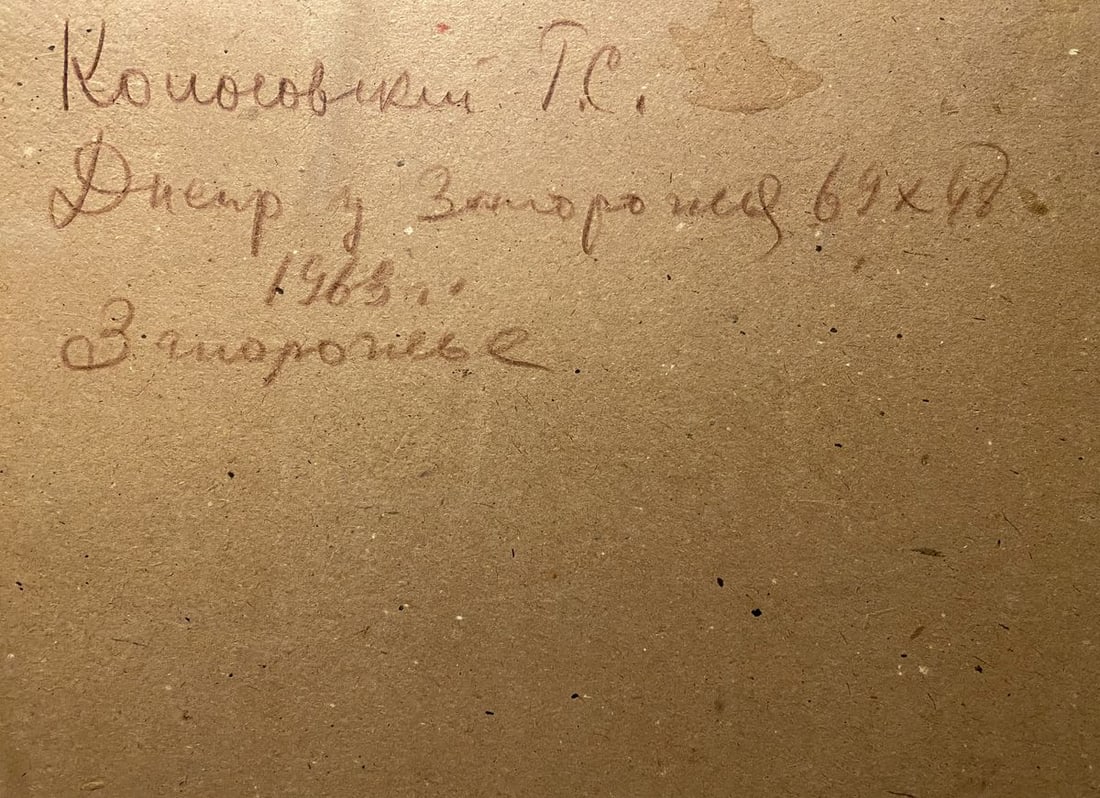 Колосовский Г.С.
Днепр у Запорожья 69х48
1963 г.
Запорожье